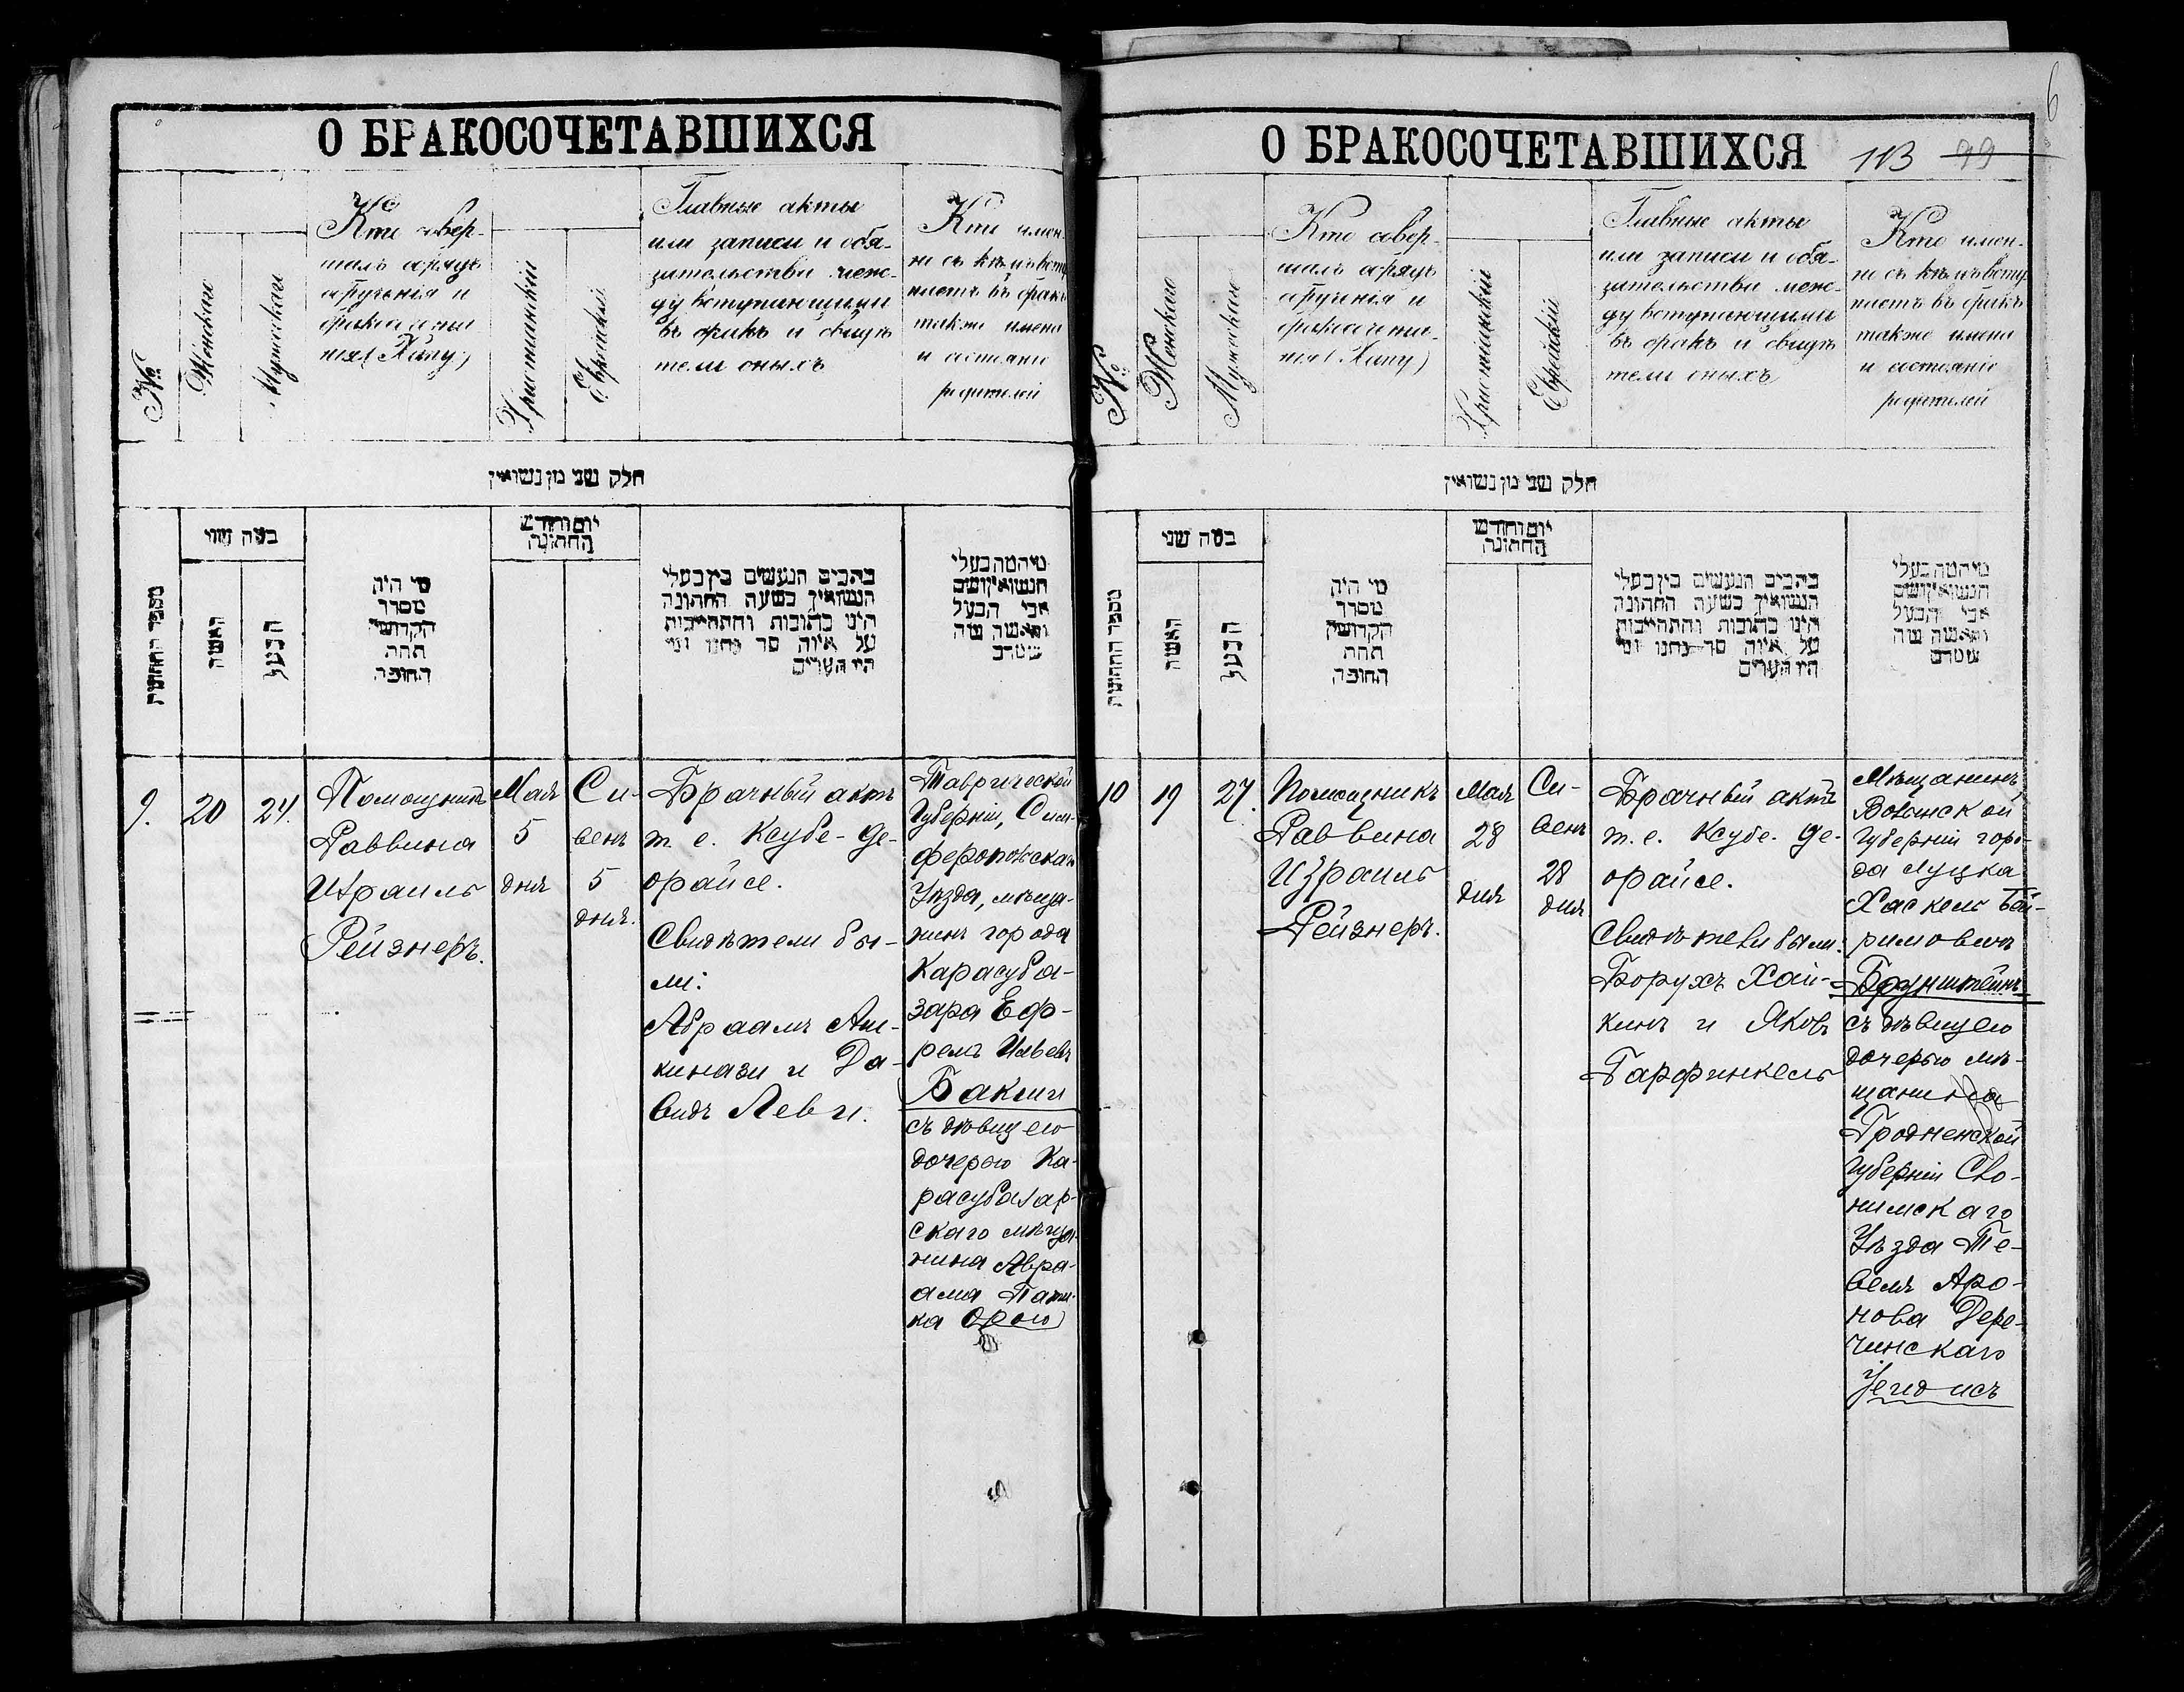 О БРАКОСОЧЕТАВШИХСЯ
№
Женскаго
Мужескаго
Кто совер-
шалъ обрядъ
обрученія и
бракосочта-
нія (Хипу)
Христіанскій
Еврейскій
Главные акты
или записи и обя-
зательства меж-
ду вступающими
въ бракъ и свидѣ
тели оныхъ
Кто имен-
но съ кѣмъ всту
паетъ въ бракъ
также имена
и состояніе
родителей
חלק שני מן נשואין
מספר החתונות
כמה שני
האשה
הבעל
מי היה
מסדר
הקדושין
תחת
החופה
יום וחודש
החתונה
כתבים הנעשים בין בעלי
הנשואין בשעה החתונה
היינו כתובות והתחייבות
על איזה סך נתנו ומי
היו העדים
מיהמה בעלי
הנשואין ושם
אבי הבעל
והאשה מה
שמרם
9.
20
24.
Помощникъ
Раввина
Израиль
Рейзнеръ.
Мая
5
дня
Си-
венъ
5
дня.
Брачный актъ
т. е. Ксубе-де-
орайсе.
Свидѣтели бы-
ли:
Абраамъ Аш-
кинази и Да-
видъ Леви.
Таврической
Губерніи, Сим-
феропольскаго
Уѣзда, мѣща-
нинъ города
Карасуба-
зара Еф-
ремъ Ильевъ
Бакши
съ дѣвицею
дочерью Ка-
расубазар-
скаго мѣща-
нина Авра-
ама Пати-
ка Орою
О БРАКОСОЧЕТАВШИХСЯ
113 99
6
№
Женскаго
Мужескаго
Кто совер-
шалъ обрядъ
обрученія и
бракосочта-
нія (Хипу)
Христіанскій
Еврейскій
Главные акты
или записи и обя-
зательства меж-
ду вступающими
въ бракъ и свидѣ
тели оныхъ
Кто имен-
но съ кѣмъ всту
паетъ въ бракъ
также имена
и состояніе
родителей
חלק שני מן נשואין
מספר החתונות
כמה שני
האשה
הבעל
מי היה
מסדר
הקדושין
תחת
החופה
יום וחודש
החתונה
כתבים הנעשים בין בעלי
הנשואין בשעה החתונה
היינו כתובות והתחייבות
על איזה סך נתנו ומי
היו העדים
מיהמה בעלי
הנשואין ושם
אבי הבעל
והאשה מה
שמרם
10
19
27.
Помощникъ
Раввина
Израиль
Рейзнеръ.
Мая
28
дня
Си-
венъ
28
дня
Брачный актъ
т. е. Ксубе-де-
орайсе.
Свидѣтели были:
Борухъ Хай-
кинъ и Яковъ
Гарфинкель
Мѣщанинъ,
Волынской
Губерніи горо-
да Луцка
Хаскель Бей-
римовичъ
Брунштейнъ
съ дѣвицею
дочерью мѣ-
щанина
Гродненской
Губерніи Сло-
нимскаго
Уѣзда Те-
веля Аро-
нова Дере-
чинскаго